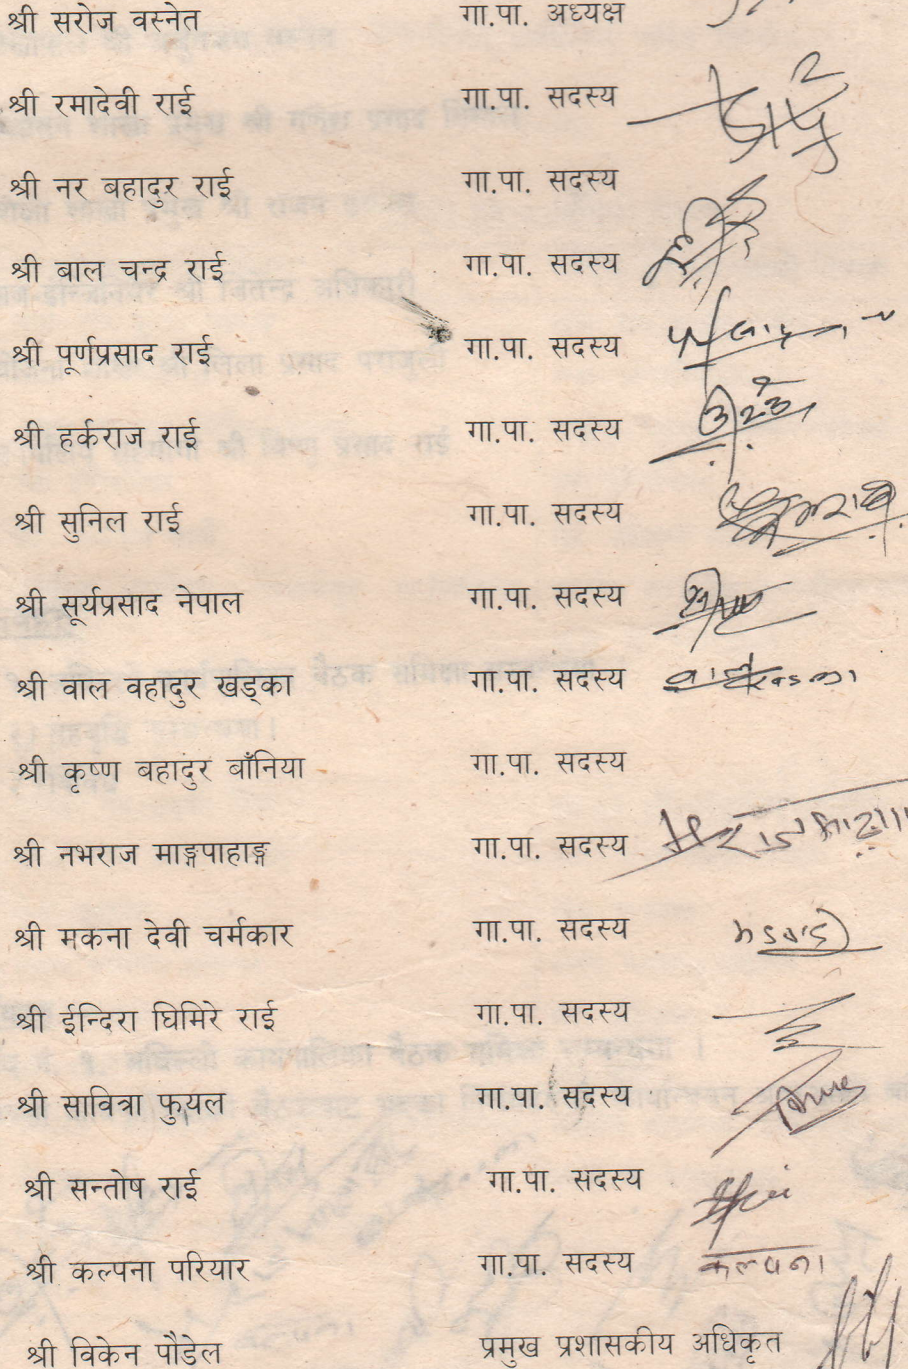 श्री सरोज वस्नेत गा.पा. अध्यक्ष
श्री रमादेवी राई गा.पा. सदस्य
श्री नर बहादुर राई गा.पा. सदस्य
श्री बाल चन्द्र राई गा.पा. सदस्य
श्री पूर्णप्रसाद राई गा.पा. सदस्य
श्री हर्कराज राई गा.पा. सदस्य
श्री सुनिल राई गा.पा. सदस्य
श्री सूर्यप्रसाद नेपाल गा.पा. सदस्य
श्री वाल वहादुर खड्का गा.पा. सदस्य
श्री कृष्ण बहादुर बाँनिया गा.पा. सदस्य
श्री नभराज माङ्गपाहाङ्ग गा.पा. सदस्य
श्री मकना देवी चर्मकार गा.पा. सदस्य
श्री ईन्दिरा घिमिरे राई गा.पा. सदस्य
श्री सावित्रा फुयल गा.पा. सदस्य
श्री सन्तोष राई गा.पा. सदस्य
श्री कल्पना परियार गा.पा. सदस्य कल्पना
श्री विकेन पौडेल प्रमुख प्रशासकीय अधिकृत